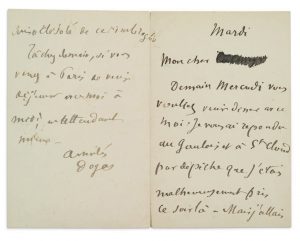 Mardi
Mon cher
Demain Mercredi vous
voulez venir dîner avec
moi. Je vous ai répondu
au Gaulois et à St Cloud
par dépêche que j'étais
malheureusement pris
ce soir là - Mais j'allais
de ce
Tachez demain, si vous
venez à Paris de venir
déjeuner avec moi à
midi, en attendant
mieux -
amitiés
Degas